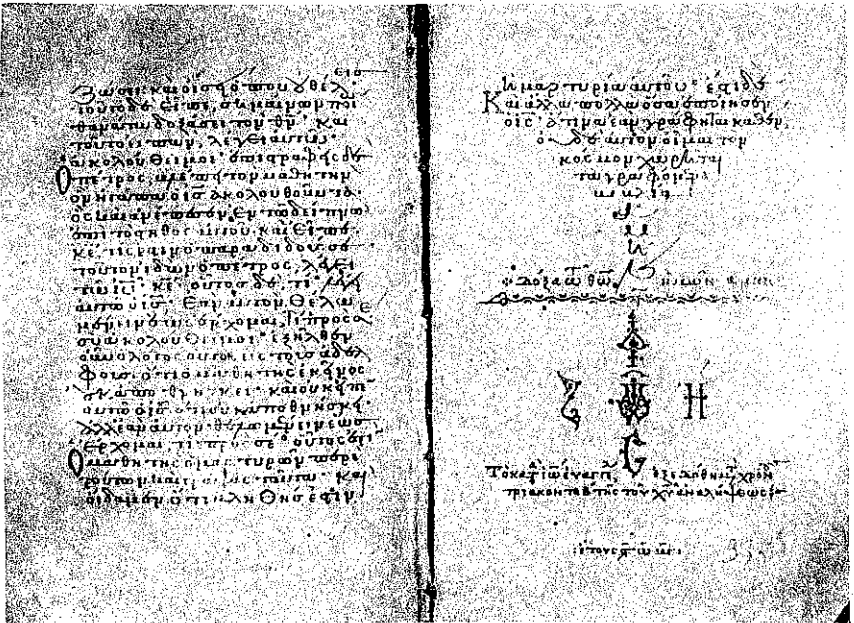 ζώσει καὶ οἴσει ὅπου οὐ θέλεις·
τοῦτο δὲ εἶπε, σημαίνων ποί
ω θανάτω δοξάσει τὸν θν· καὶ
τοῦτο εἰπὼν, λέγει αὐτῶ·
ἀκολούθει μοι· ἐπιστραφεὶς δὲ
ὁ πέτρος βλέπει τὸν μαθητὴν
ὃν ἠγάπα ὁ ις ἀκολουθοῦντα·
ὃς καὶ ἀνέπεσεν ἐν τῶ δείπνω
ἐπὶ τὸ στῆθος αὐτοῦ, καὶ εἶπε·
κε τίς ἐστιν ὁ παραδιδούς σε·
τοῦτον ἰδὼν ὁ πέτρος, λέγει
τῶ ιυ· κε οὗτος δὲ τί· λέγει
αὐτῶ ὁ ις· ἐὰν αὐτὸν θέλω
μένειν ἕως ἔρχομαι, τί πρὸς σε
σὺ ἀκολούθει μοι· ἐξῆλθεν
οὖν ὁ λόγος οὗτος εἰς τοὺς ἀδελ
φοὺς ὅτι ὁ μαθητὴς ἐκεῖνος
οὐκ ἀποθνήσκει· καὶ οὐκ εἶπεν
αὐτῶ ὁ ις ὅτι οὐκ ἀποθνήσκει·
ἀλλ' ἐὰν αὐτὸν θέλω μένειν ἕως
ἔρχομαι τί πρὸς σέ· οὗτός ἐστιν
ὁ μαθητὴς ὁ μαρτυρῶν περὶ
τούτων καὶ γράψας ταῦτα· καὶ
οἴδαμεν ὅτι ἀληθής ἐστιν
ἡ μαρτυρία αὐτοῦ· ἔστι δὲ
καὶ ἄλλα πολλὰ ὅσα ἐποίησεν
ὁ ις· ἅτινα ἐὰν γράφηται καθ' ἕν,
οὐδὲ αὐτὸν οἶμαι τὸν
κόσμον χωρῆσαι
τὰ γραφόμενα
βιβλία
ἀ
μ
ή
ν
Τὸ κατὰ ἰωάννην ἐξεδόθη μετὰ χρόν
τριάκοντα β τῆς τοῦ χυ ἀναλήψεως